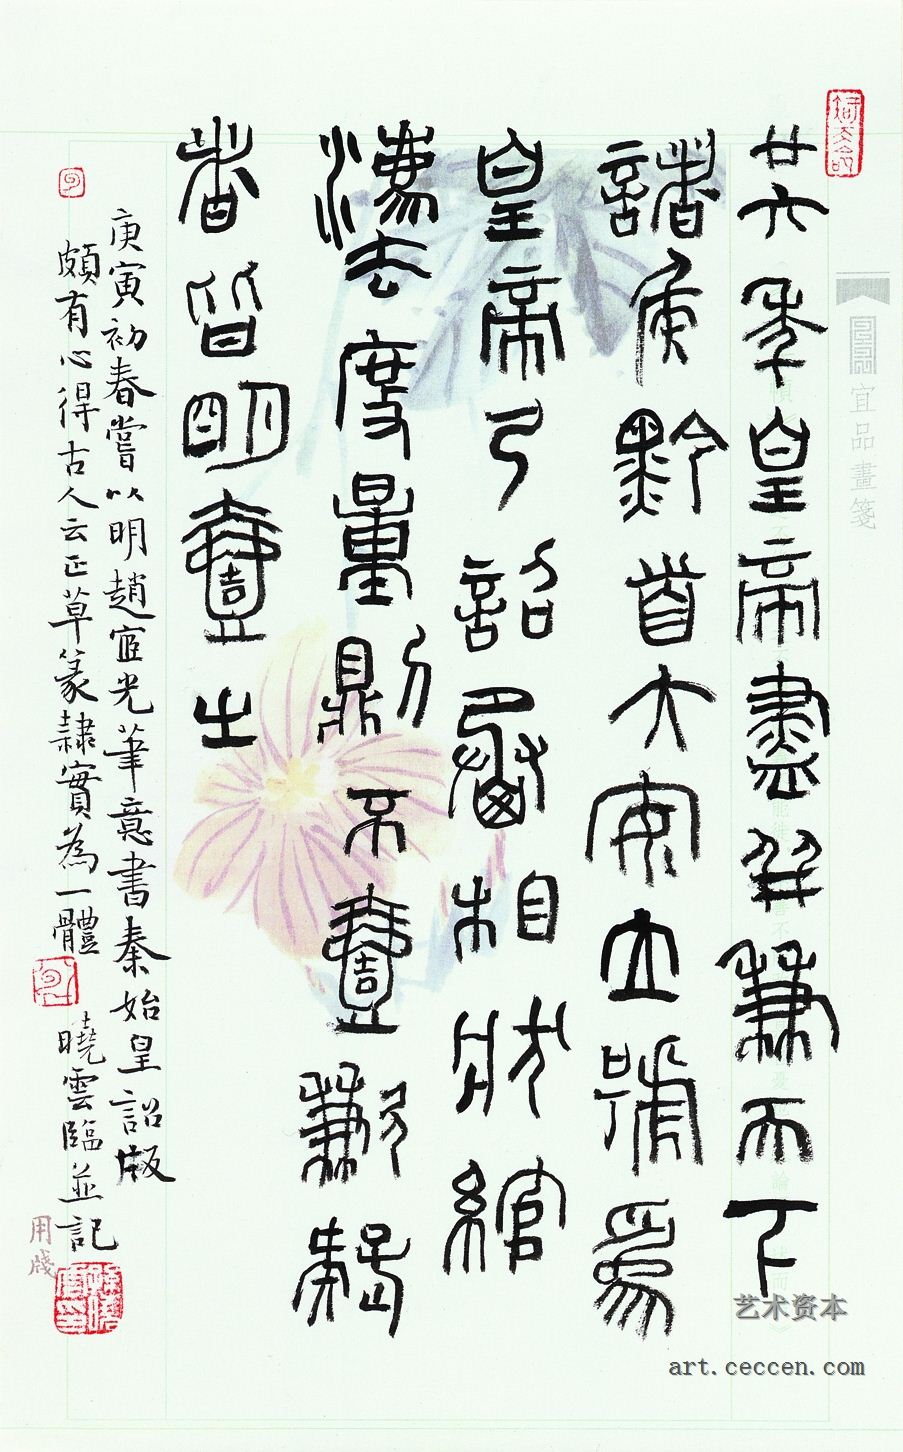 廿六年皇帝盡并兼天下
諸侯黔首大安立號為
皇帝乃詔丞相狀綰
灋度量則不壹歉疑
者皆明壹之
庚寅初春嘗以明趙宧光筆意書秦始皇詔版
頗有心得古人云正草篆隸實為一體 曉雲臨並記
宜品畫箋
用牋
艺术资本
art.ceccen.com